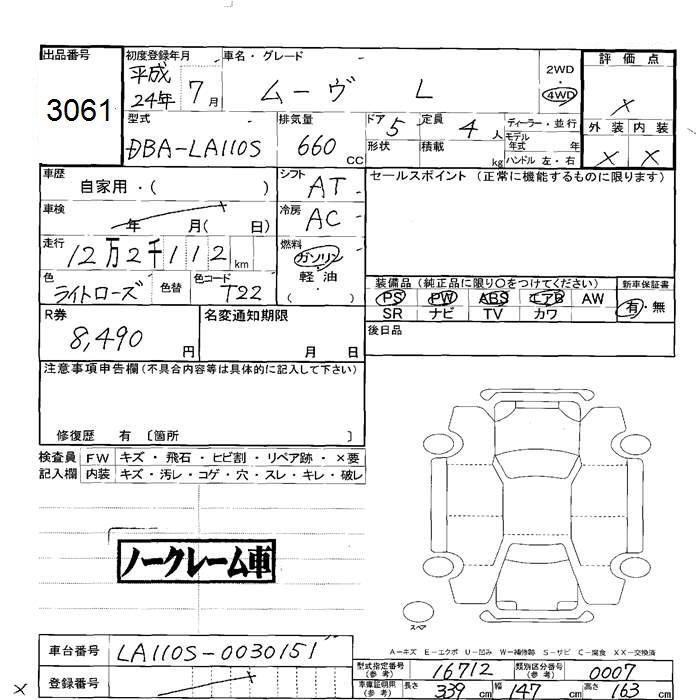 出品番号
3061
初度登録年月
平成
24年 7月
車名・グレード
ムーヴ L
2WD
・
4WD
評価点
X
外装 内装
X X
型式
DBA-LA110S
排気量
660 CC
ドア 5
形状
定員 4 人
積載 kg
ディーラー・並行
モデル
年式 年
ハンドル 左・右
車歴
自家用・( )
シフト
AT
セールスポイント (正常に機能するものに限ります)
車検
年 月( 日)
冷房
AC
走行
12万2千112km
燃料
ガソリン
・
軽油
・
( )
色
ライトローズ
色替
色コード
T22
装備品(純正品に限り○をつけてください)
PS PW ABS エアB AW
SR ナビ TV カワ
新車保証書
有・無
R券
8,490 円
名変通知期限
月 日
後日品
注意事項申告欄(不具合内容等は具体的に記入して下さい)
修復歴 有 〔箇所 〕
検査員
記入欄
FW キズ・飛石・ヒビ割・リペア跡・×要
内装 キズ・汚レ・コゲ・穴・スレ・キレ・破レ
ノークレーム車
スペア
A−キズ E−エクボ U−凹み W−補修跡 S−サビ C−腐食 XX−交換済
車台番号
LA110S-0030151
登録番号
型式指定番号
(参考)
16712
類別区分番号
(参考)
0007
車庫証明用
(参考)
長さ 339 cm 幅 147 cm 高さ 163 cm
X